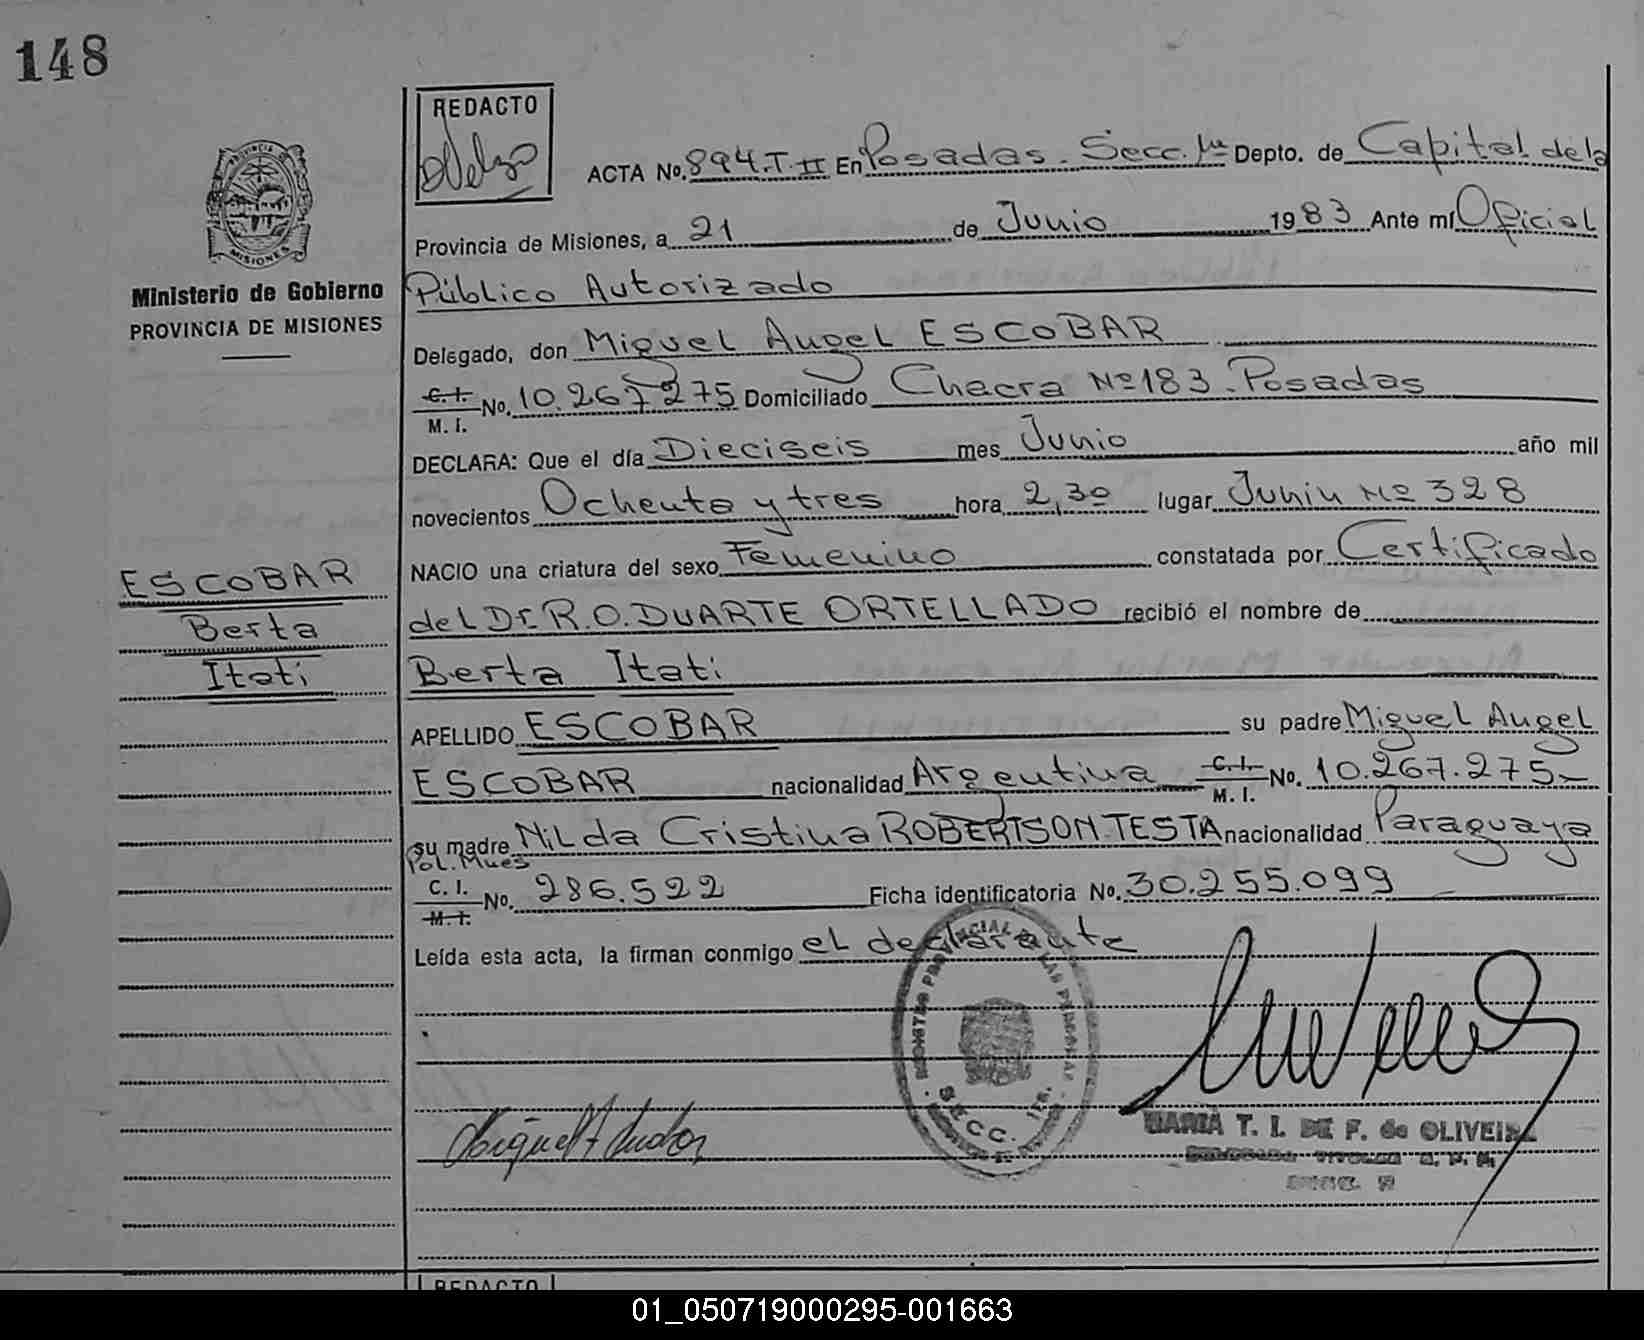 148
REDACTO
ACTA No. 894.T.II En Posadas. Secc. 1ra Depto. de Capital de la
Provincia de Misiones, a 21 de Junio 1983 Ante mí Oficial
Público Autorizado
Delegado, don Miguel Angel ESCOBAR
C.I.
M. I. No. 10.267.275 Domiciliado Chacra Nº 183. Posadas
DECLARA: Que el día Dieciseis mes Junio año mil
novecientos Ochenta y tres hora 2,30 lugar Junin Nº 328
NACIO una criatura del sexo Femenino constatada por Certificado
del Dr. R.O. DUARTE ORTELLADO recibió el nombre de
Berta Itati
APELLIDO ESCOBAR su padre Miguel Angel
ESCOBAR nacionalidad Argentina C.I.
M. I. No. 10.267.275-
su madre Nilda Cristina ROBERTSON TESTA nacionalidad Paraguaya
Pol. Mnes
C. I.
M. I. No. 286.522 Ficha identificatoria No. 30.255.099
Leída esta acta, la firman conmigo el declarante
PROVINCIA DE
MISIONES
Ministerio de Gobierno
PROVINCIA DE MISIONES
ESCOBAR
Berta
Itati
REGISTRO PROVINCIAL DE LAS PERSONAS
SECC. 1ra.
MARIA T. I. DE F. de OLIVEIRA
REDACTO
01_050719000295-001663